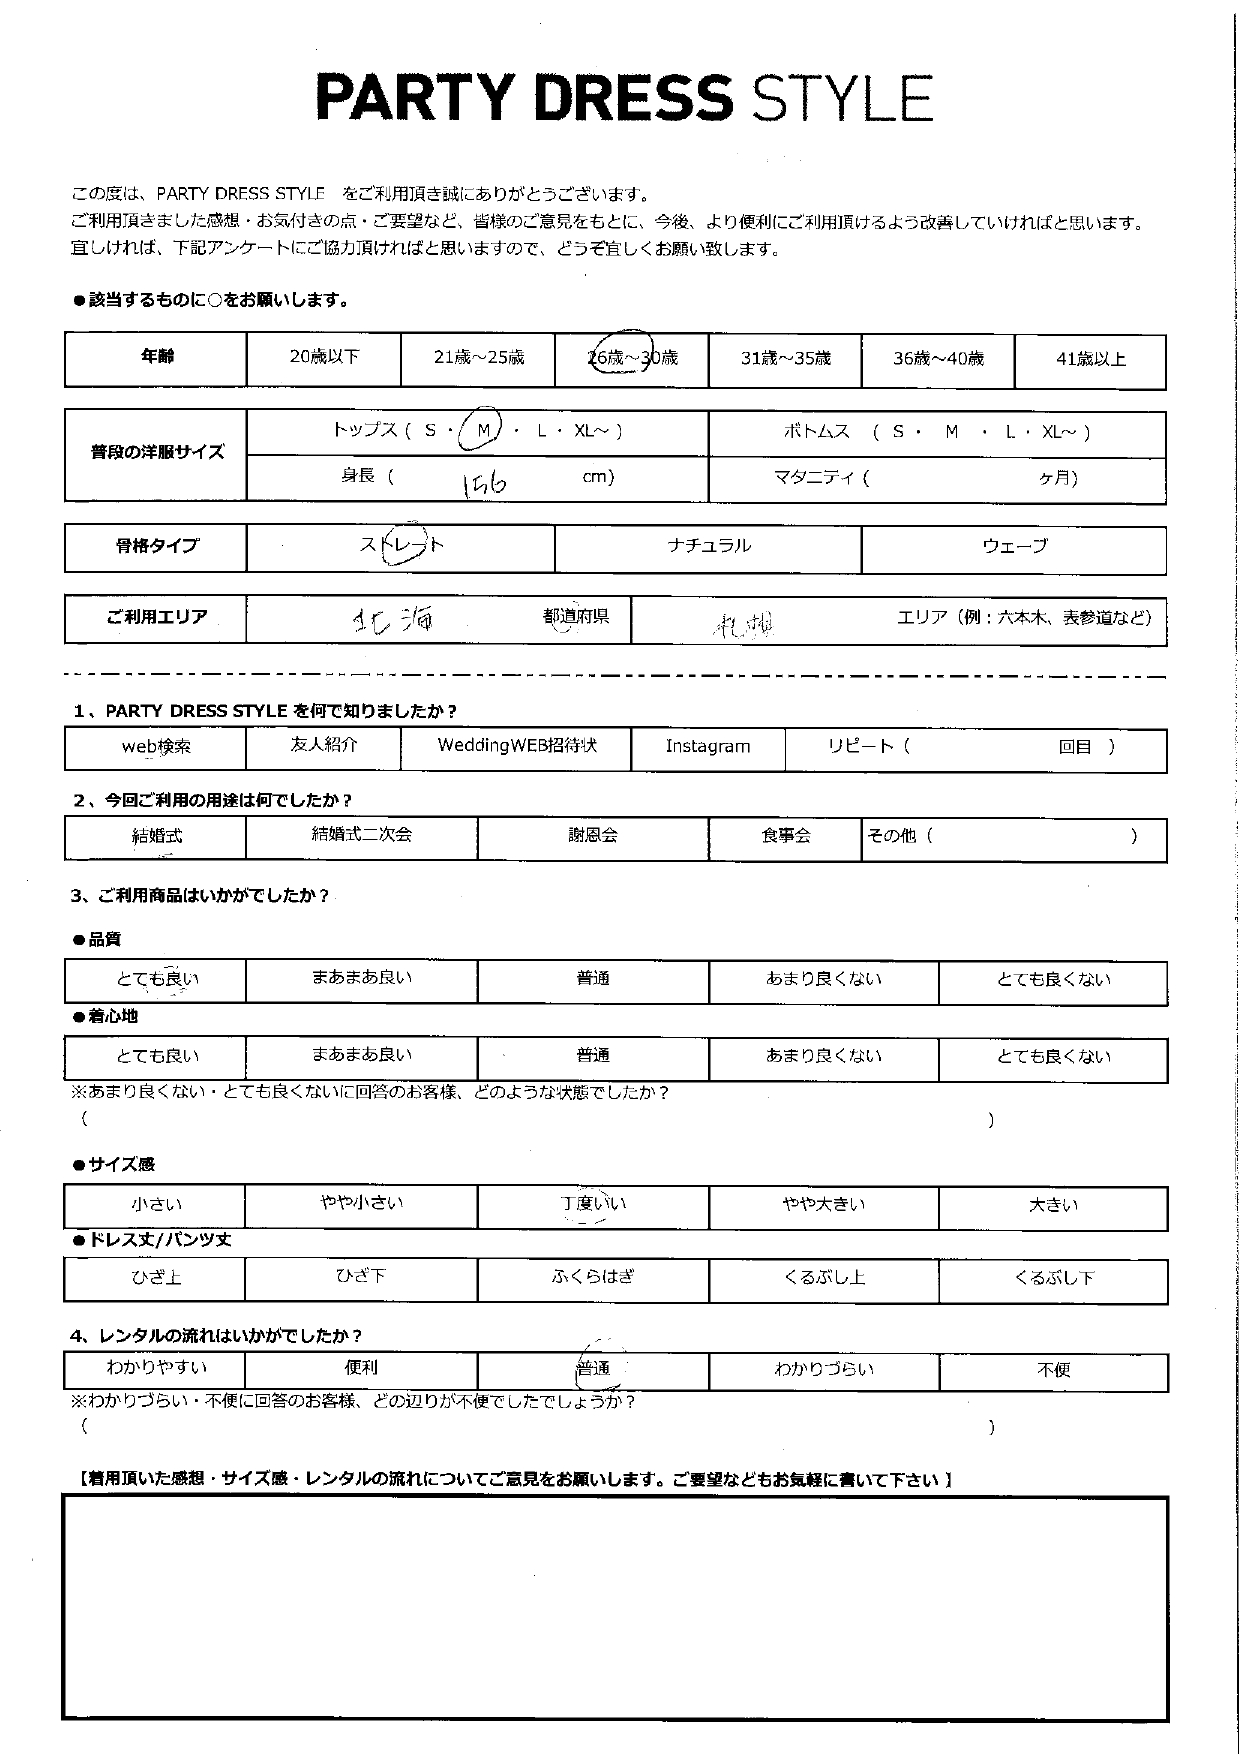 PARTY DRESS STYLE
この度は、PARTY DRESS STYLE をご利用頂き誠にありがとうございます。
ご利用頂きました感想・お気付きの点・ご要望など、皆様のご意見をもとに、今後、より便利にご利用頂けるよう改善していければと思います。
宜しければ、下記アンケートにご協力頂ければと思いますので、どうぞ宜しくお願い致します。
●該当するものに○をお願いします。
年齢 20歳以下 21歳～25歳 26歳～30歳 31歳～35歳 36歳～40歳 41歳以上
普段の洋服サイズ トップス ( S ・ M ・ L ・ XL～ ) ボトムス ( S ・ M ・ L ・ XL～ )
身長 ( 156 cm) マタニティ ( ヶ月)
骨格タイプ ストレート ナチュラル ウェーブ
ご利用エリア 北海 都道府県 札幌 エリア（例：六本木、表参道など）
1、PARTY DRESS STYLE を何で知りましたか？
web検索 友人紹介 WeddingWEB招待状 Instagram リピート ( 回目 )
2、今回ご利用の用途は何でしたか？
結婚式 結婚式二次会 謝恩会 食事会 その他 ( )
3、ご利用商品はいかがでしたか？
●品質
とても良い まあまあ良い 普通 あまり良くない とても良くない
●着心地
とても良い まあまあ良い 普通 あまり良くない とても良くない
※あまり良くない・とても良くないに回答のお客様、どのような状態でしたか？
( )
●サイズ感
小さい やや小さい 丁度いい やや大きい 大きい
●ドレス丈/パンツ丈
ひざ上 ひざ下 ふくらはぎ くるぶし上 くるぶし下
4、レンタルの流れはいかがでしたか？
わかりやすい 便利 普通 わかりづらい 不便
※わかりづらい・不便に回答のお客様、どの辺りが不便でしたでしょうか？
( )
【着用頂いた感想・サイズ感・レンタルの流れについてご意見をお願いします。ご要望などもお気軽に書いて下さい 】